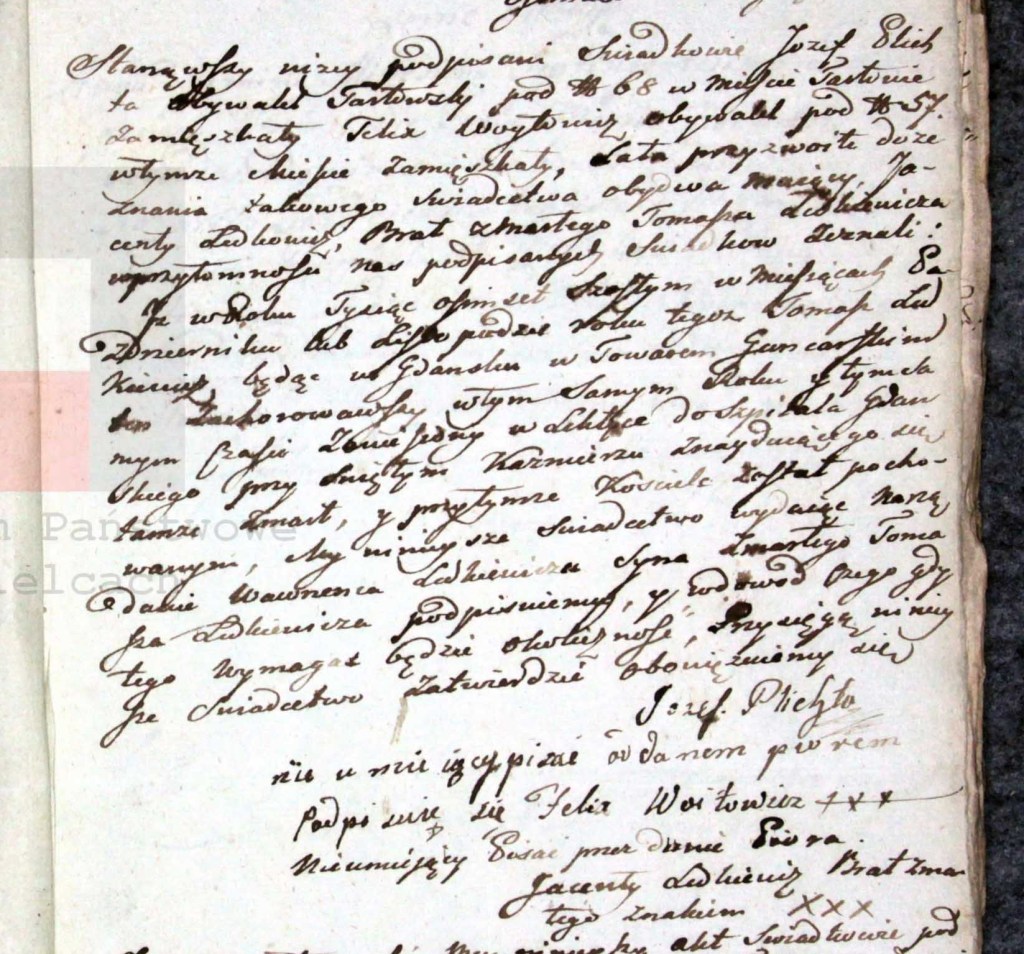 Stanąwszy niżey podpisani Swiadkowie Jozef Plich
ta Obywatel Tarłowski pod № 68 w Mieście Tarłowie
Zamięszkały Felix Woytowicz obywatel pod № 57.
wtymze Mieście Zamięszkały, Lata przyzwoite do ze
znania takowego Swiadectwa obydwa maiący, Ja-
centy Ludkiewicz, Brat zmarłego Tomasza Ludkiewicza
wprzytomności nas podpisanych Swiadkow Zeznali:
Jż w Roku Tysiąc ośmset Szostym w Miesiącach Pa-
zdzierniku lub Listopadzie roku tegoz Tomasz Lud
kiewicz będąc w Gdansku w Towarem Garncarskim
ten Zachorowawszy wtym Samym Roku y tymsa
mym Czasie Zaniesiony w Lektyce do Szpitala Gdan
skiego przy Swiętym Kazmierzu Znayduiącego się
tamze Zmarł, y przytymze Kościele Został pocho-
wanym, My ninieysze Swiadectwo wydaięc na żą
danie Wawrzenca Ludkiewicza Syna Zmarłego Toma
sza Ludkiewicza podpisuiemy, y dowod czego gdy
tego wymagać będzie okoliczność, Przysięgą niniey
sze Swiadectwo Zatwierdzić obowięzuiemy się
Jozef. Plichta
nie umieiący pisać oddanem piorem
Podpisuię się Felix Woitowicz + + +
Nieumiejący Pisać przez danie Piora.
Jacenty Ludkiewicz Brat Zmar
łego znakiem X X X
akt Swiadkowie pod
Państwowe
ielcach